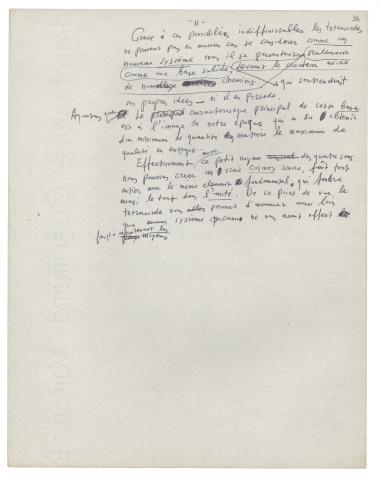 - 11 -
36
Grâce à ces possibilités indéfinissables les tetracordes
ne peuvent pas en aucun cas se considérer comme un
nouveau système mais il se presenteraient seulement
comme une base solide devant le planteur avide
de nouveaux chemins qui soutiendrait
ses propres idées — si il en possède.
Ajoutons que le caractéristique principal de cette base
est à l'image de notre époque qui a su obtenir
d'un minimum de quantité le maximum de
qualité en énergie.
Effectivement, ce petit noyau des quatre sons
nous pouvons créer un vrai cosmos sonore, fait tout
entier avec le même élément fondamental, qui
ainsi, le tout dans l'unité. De ce point de vue, le
tetracorde nous permet d'avancer aussi loin
que aucun système ne nous avait offert
jusqu'à moyens